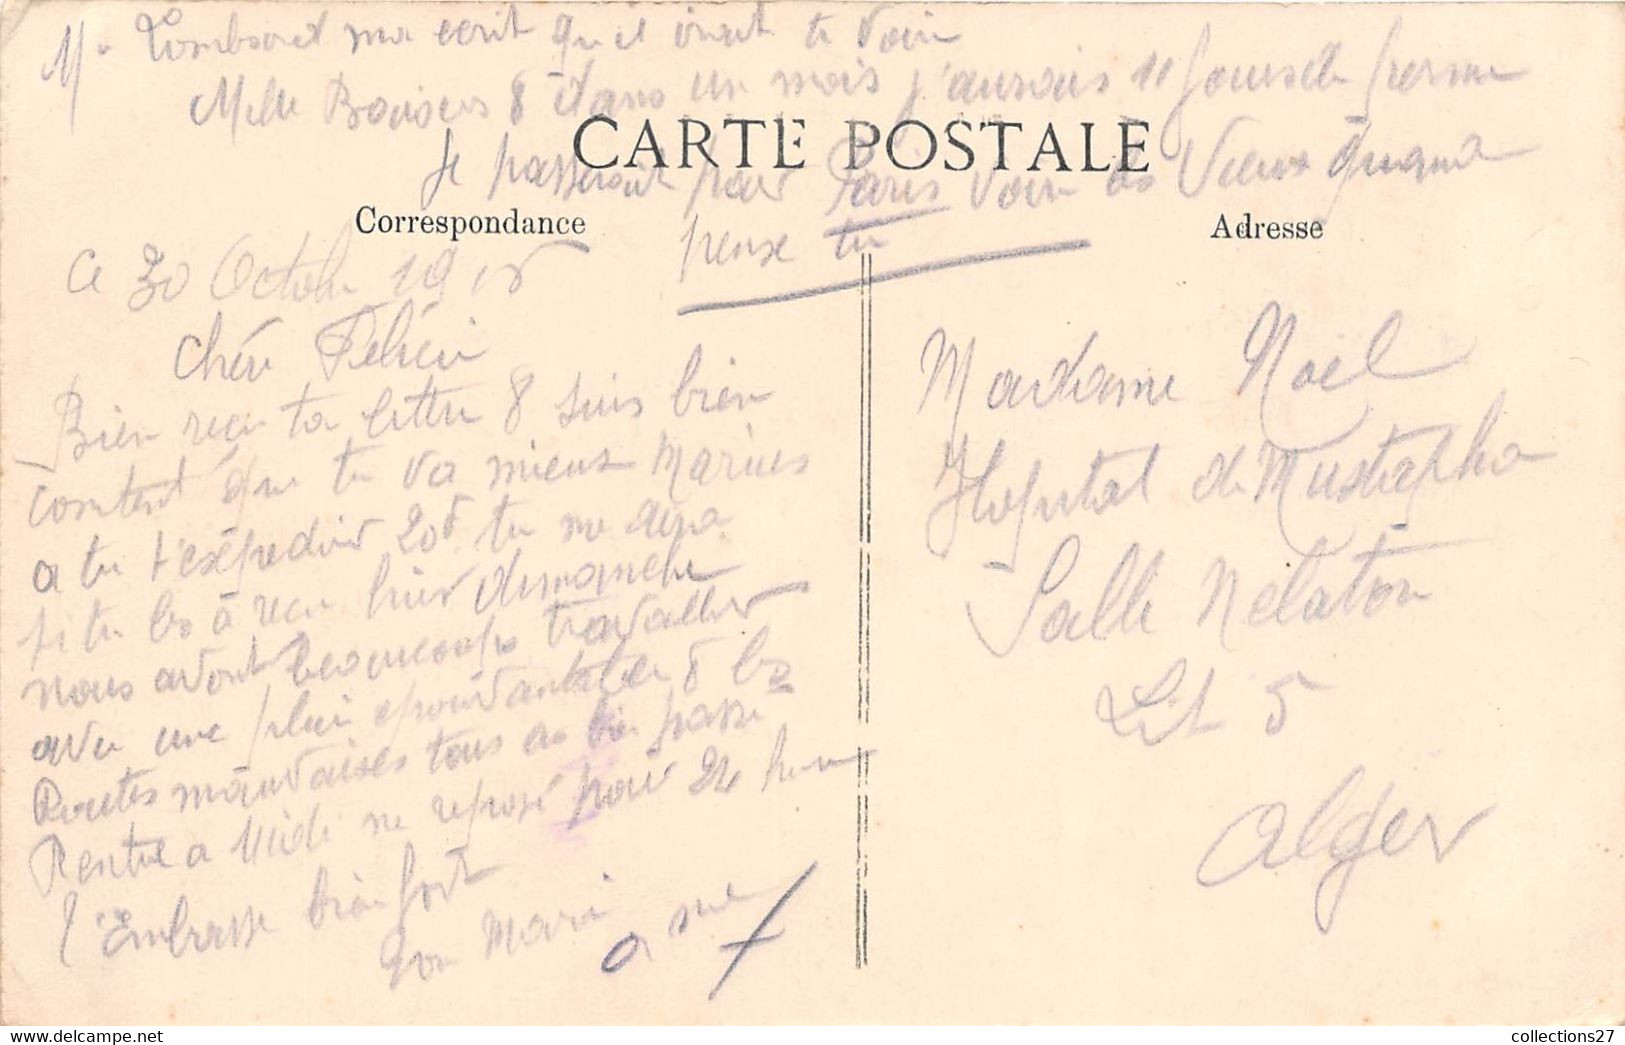 Mr Lombard ma ecrit qu'il irait te voir
Mille Baisers & dans un mois j'aurais 11 Jours de perme
Je passerait par Paris voir les Vieux quand
pense tu
CARTE POSTALE
Correspondance
Adresse
Ce 30 Octobre 1915
Chére
Bien reçu ta lettre & suis bien
content que tu va mieux Marius
a tu t'expedier 20f tu me dira
si tu les à reçu hier dimanche
nous avont beaucoups travailler
avec une pluie epouvantable & les
Routes mauvaises tous as bien passé
Rentré a Midi me reposé pour 24 heures
t'Embrasse bien fort
Ton Mari
Madame Noël
Hopital de Mustapha
Salle Nelaton
Lit 5
Alger
collections27